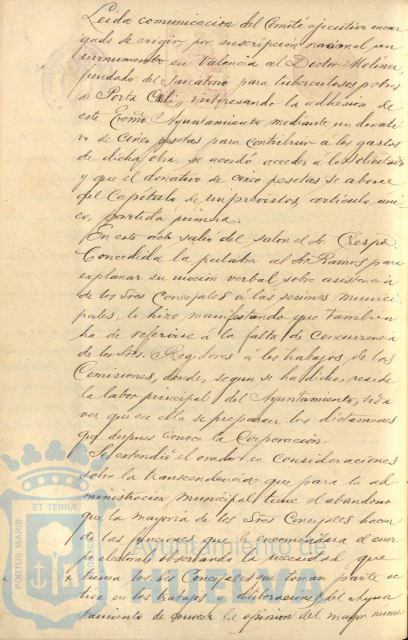 Leida comunicación del Comité ejecutivo encar
gado de erigir, por suscripción nacional un
monumento en Valencia al Doctor Moliner,
fundador del Sanatorio para tuberculosos pobres
de Porta Coeli, interesando la adhesion de
este Excmo Ayuntamiento mediante un donati
vo de cinco pesetas para contribuir á los gastos
de dicha obra, se acordó acceder á lo solicitado
y que el donativo de cinco pesetas se abone
del Capítulo de imprevistos, artículo uni
co, partida primera.
En este acto salió del salon el Sr. Crespo.
Concedida la palabra al Sr. Ramos para
explanar su mocion verbal sobre asistencia
de los Sres Concejales á las sesiones munici
pales, lo hizo manifestando que tambien
ha de referirse á la falta de concurrencia
de los Sres. Regidores á los trabajos de las
Comisiones, donde, segun se ha dicho, reside
la labor principal del Ayuntamiento, toda
vez que en ella se preparan los dictamenes
que despues conoce la Corporacion.
Se extendió el orador en consideraciones
sobre la transcendencia que para la ad
ministracion municipal tiene el abandono
que la mayoria de los Sres Concejales hacen
de las funciones que le encomendara el cuer
po electoral, observando la necesidad que
tienen los Sres Concejales que toman parte ac
tiva en los trabajos y discusiones del Ayun
tamiento de conocer la opinion del mayor nume
ET TERRÆ
PORTUS MARIS
Ayuntamiento de
HUELVA